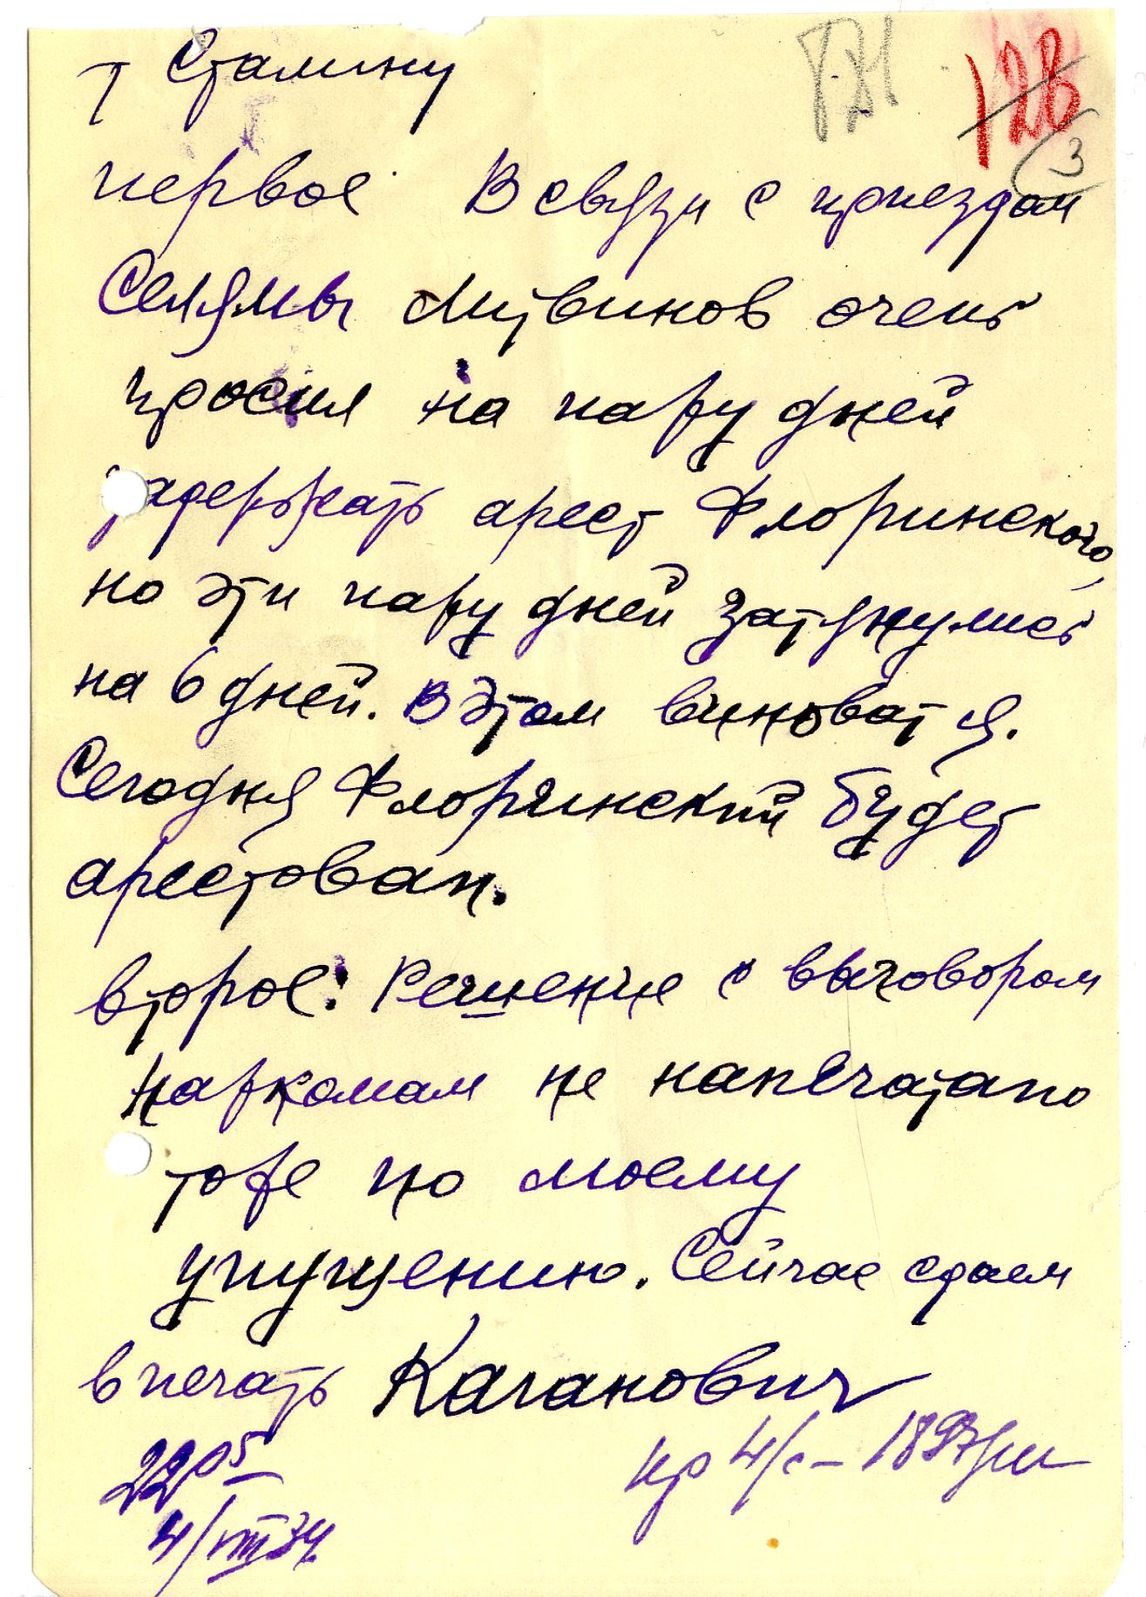 т Сталину
128
3
первое. В связи с приездом
Селямы Литвинов очень
просил на пару дней
задержать арест Флоринского,
но эти пару дней затянулись
на 6 дней. В этом виноват я.
Сегодня Флоринский будет
арестован.
второе: Решение с выговором
наркомам не напечатано
тоже по моему
упущению. Сейчас сдаем
в печать Каганович
22 05
4/VIII 34.